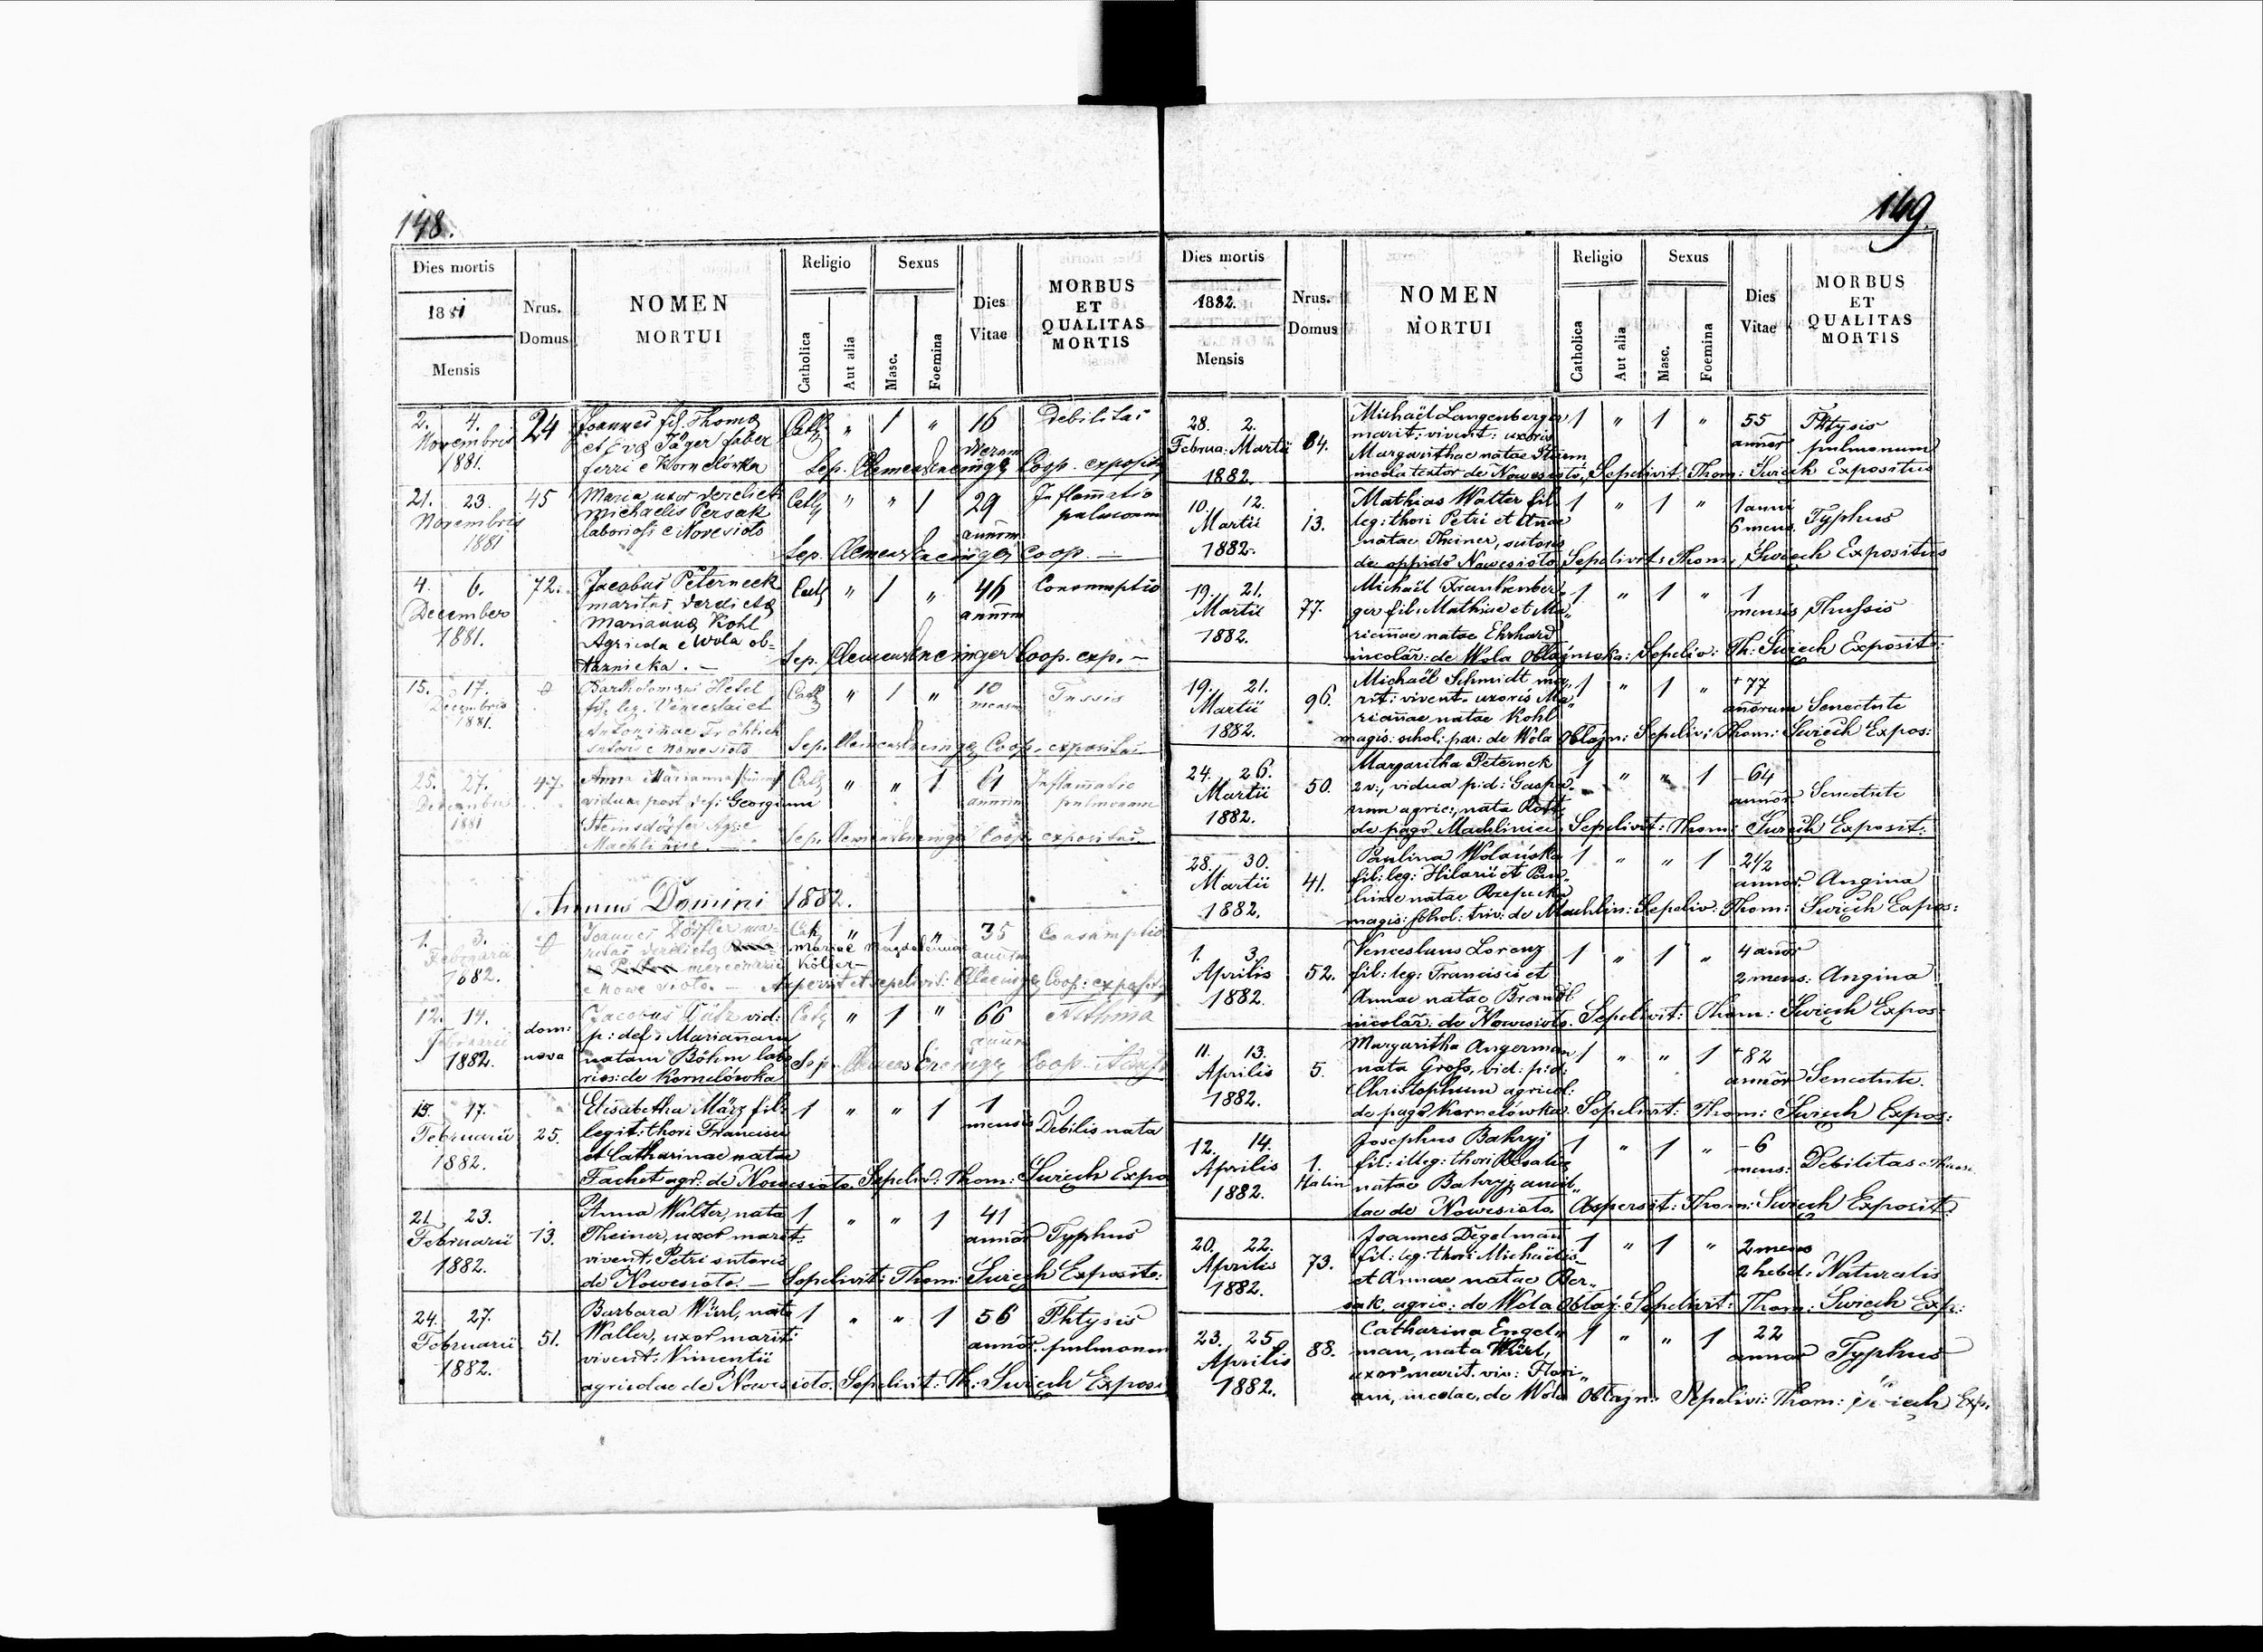 148.
Dies mortis
1881
Mensis
Nrus.
Domus
NOMEN
MORTUI
Religio
Catholica
Aut alia
Sexus
Masc.
Foemina
Dies
Vitae
MORBUS
ET
QUALITAS
MORTIS
2. 4. 24 Joannes fil. Thomae Cath " 1 " 16 Debilitas
Novembris et Evae Jäger faber dierum
1881. ferri e Kornelówka Sep. Clemens Encinger Coop. exposit
21. 23. 45 Maria uxor derelict: Cath " " 1 29 Inflamatio
Novembris Michaelis Persak annorum pulmonum
1881 laboriosi e Novesioto
Sep. Clemens Encinger Coop. —
4. 6. 72. Jacobus Peterneck Cath " 1 " 46 Consumptio
Decembris maritus derelictae annorum
1881. Mariannae Kohl
Agricola e Wola ob=
laznicka. — Sep. Clemens Encinger Coop. exp. —
15. 17. Bartholomaeus Hetel Cath " 1 " 10 Tussis
Decembris fil. leg. Venceslai et mensium
1881. Antoninae Fröhlich
sutoris e Nowesioto Sep. Clemens Encinger Coop. expositus
25. 27. 47 Anna Marianna Cath " " 1 61 Inflamatio
Decembris vidua post def: Georgium annorum pulmonum
1881 Steinsdörfer Agr: e
Machlinice. — Sep. Clemens Encinger Coop. expositus
Annus Domini 1882.
1. 3. Joannes Dörfler ma= Cath " 1 " 35 Consumptio
Februarii ritus derelictae Mariae Magdalenae annorum
1882. mercenarii Kölier —
e Nowesioto. — Aspersit et sepelivit: Cl. Encinger Coop: exposit.
12. 14. dom: nova Jacobus Wütz vid: Cath " 1 " 66 Asthma
Februarii p: def: Mariannam annorum
1882. natam Böhm labo
rios: de Kornelówka Sep. Clemens Encinger Coop.
15. 17. Elisabetha März fil: 1 " " 1 1
Februarii 25. legit: thori Francisci mensis Debilis nata
1882. et Catharinae natae
Fachet agr: de Nowesioto. Sepeliv: Thom: Święch Expo
21. 23. Anna Walter, nata 1 " " 1 41
Februarii 13. Theiner, uxor marit: annor Typhus
1882. vivent: Petri sutoris
de Nowesioto. — Sepelivit: Thom: Święch Exposit:
24. 27. Barbara Würl, nata 1 " " 1 56 Phtysis
Februarii 51. Waller, uxor marit: annor. pulmonum
1882. vivent: Vincentii
agricolae de Nowesioto. Sepelivit: Th: Święch Exposi
149.
Dies mortis
1882.
Mensis
Nrus.
Domus
NOMEN
MORTUI
Religio
Catholica
Aut alia
Sexus
Masc.
Foemina
Dies
Vitae
MORBUS
ET
QUALITAS
MORTIS
28. 2. Michaël Langenberger 1 " 1 " 55 Phtysis
Februa. Martii 84. marit: vivent: uxoris annor pulmonum
Margarithae natae Sturm
1882. incola textor de Nowesioto, Sepelivit: Thom: Święch Expositus
10. 12. Mathias Walter fil: 1 " 1 " 1 anni
Martii 13. leg: thori Petri et Annae 6 mens. Typhus
natae Theiner, sutoris
1882. de oppido Nowesioto Sepelivit: Thom: Święch Expositus
19. 21. Michaël Frankenber= 1 " 1 " 1
Martii 77. ger fil: Mathiae et Ma= mensis Thussis
1882. riannae natae Ehrhard
incolar: de Wola Oblaznicka: Sepeliv: Th: Święch Exposit:
19. 21. Michaël Schmidt ma= 1 " 1 " 77
Martii 96. rit: vivent. uxoris Ma= annorum Senectute
riannae natae Kohl
1882. magis: schol: par: de Wola Obłazn: Sepeliv: Thom: Święch Expos:
24. 26. Margaritha Peternek 1 " " 1 64
Martii 50. 2v:, vidua p:d: Gaspa= annor Senectute
rum agric:, nata Rott
1882. de pago Machlinice, Sepelivit: Thom: Święch Exposit:
28. 30. Paulina Wolańska 1 " " 1 2 1/2
Martii 41. fil: leg: Hilarii et Pau= annor. Angina
linae natae Rzepucka
1882. magis: schol: triv: de Machlin: Sepeliv: Thom: Święch Expos:
1. 3. Venceslaus Lorenz 1 " 1 " 4 annor
Aprilis 52. fil: leg: Francisci et 2 mens: Angina
1882. Annae natae Brandl
incolar: de Nowesioto. Sepelivit: Thom: Święch Expos:
11. 13. Margaritha Angerman 1 " " 1 82
Aprilis 5. nata Gross, vid: p:d: annor Senectute.
1882. Christophum agricol:
de pago Kornelówka. Sepelivit: Thom: Święch Expos:
12. 14. Josephus Bahryj 1 " 1 " 6
Aprilis 1. fil: illeg: thori Rosaliae mens: Debilitas
1882. Halin natae Bahryj ancil=
lae de Nowesioto. Aspersit: Thom: Święch Exposit:
20. 22. Joannes Degelman 1 " 1 " 2 mens
Aprilis 73. fil: leg: thori Michaëlis 2 hebd: Naturalis
1882. et Annae natae Ber=
sak, agric: de Wola Obłaz: Sepelivit: Thom: Święch Exp:
23. 25. Catharina Engel= 1 " " 1 22
Aprilis 88. man, nata Würl, annor Typhus
1882. uxor marit. viv: Flori=
ani, incolae, de Wola Obłazn: Sepeliv: Thom: Święch Exp.